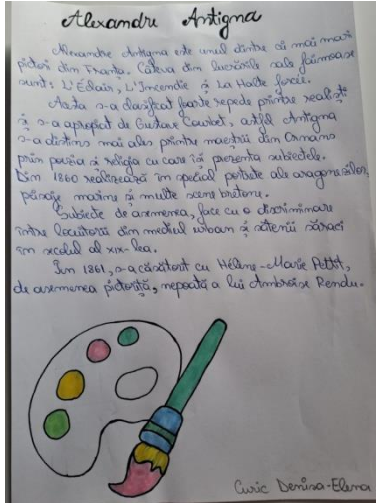 Alexandre Antigna
Alexandre Antigna este unul dintre cei mai mari
pictori din Franța. Câteva din lucrările sale faimoase
sunt: L'Éclair, L'Incendie și La Halte forcée.
Acesta s-a clasificat foarte repede printre realiști
și s-a apropiat de Gustave Courbet, astfel Antigna
s-a distins mai ales printre maeștrii din Ornans
prin poezia și religia cu care își prezenta subiectele.
Din 1860 realizează în special portrete ale aragonezilor,
peisaje marine și multe scene bretone.
Subiecte de asemenea, face cu o discriminare
între locuitorii din mediul urban și sătenii săraci
în secolul al XIX-lea.
În 1861, s-a căsătorit cu Hélène-Marie Pettit,
de asemenea pictoriță, nepoată a lui Ambroise Rendu.
Curic Denisa-Elena